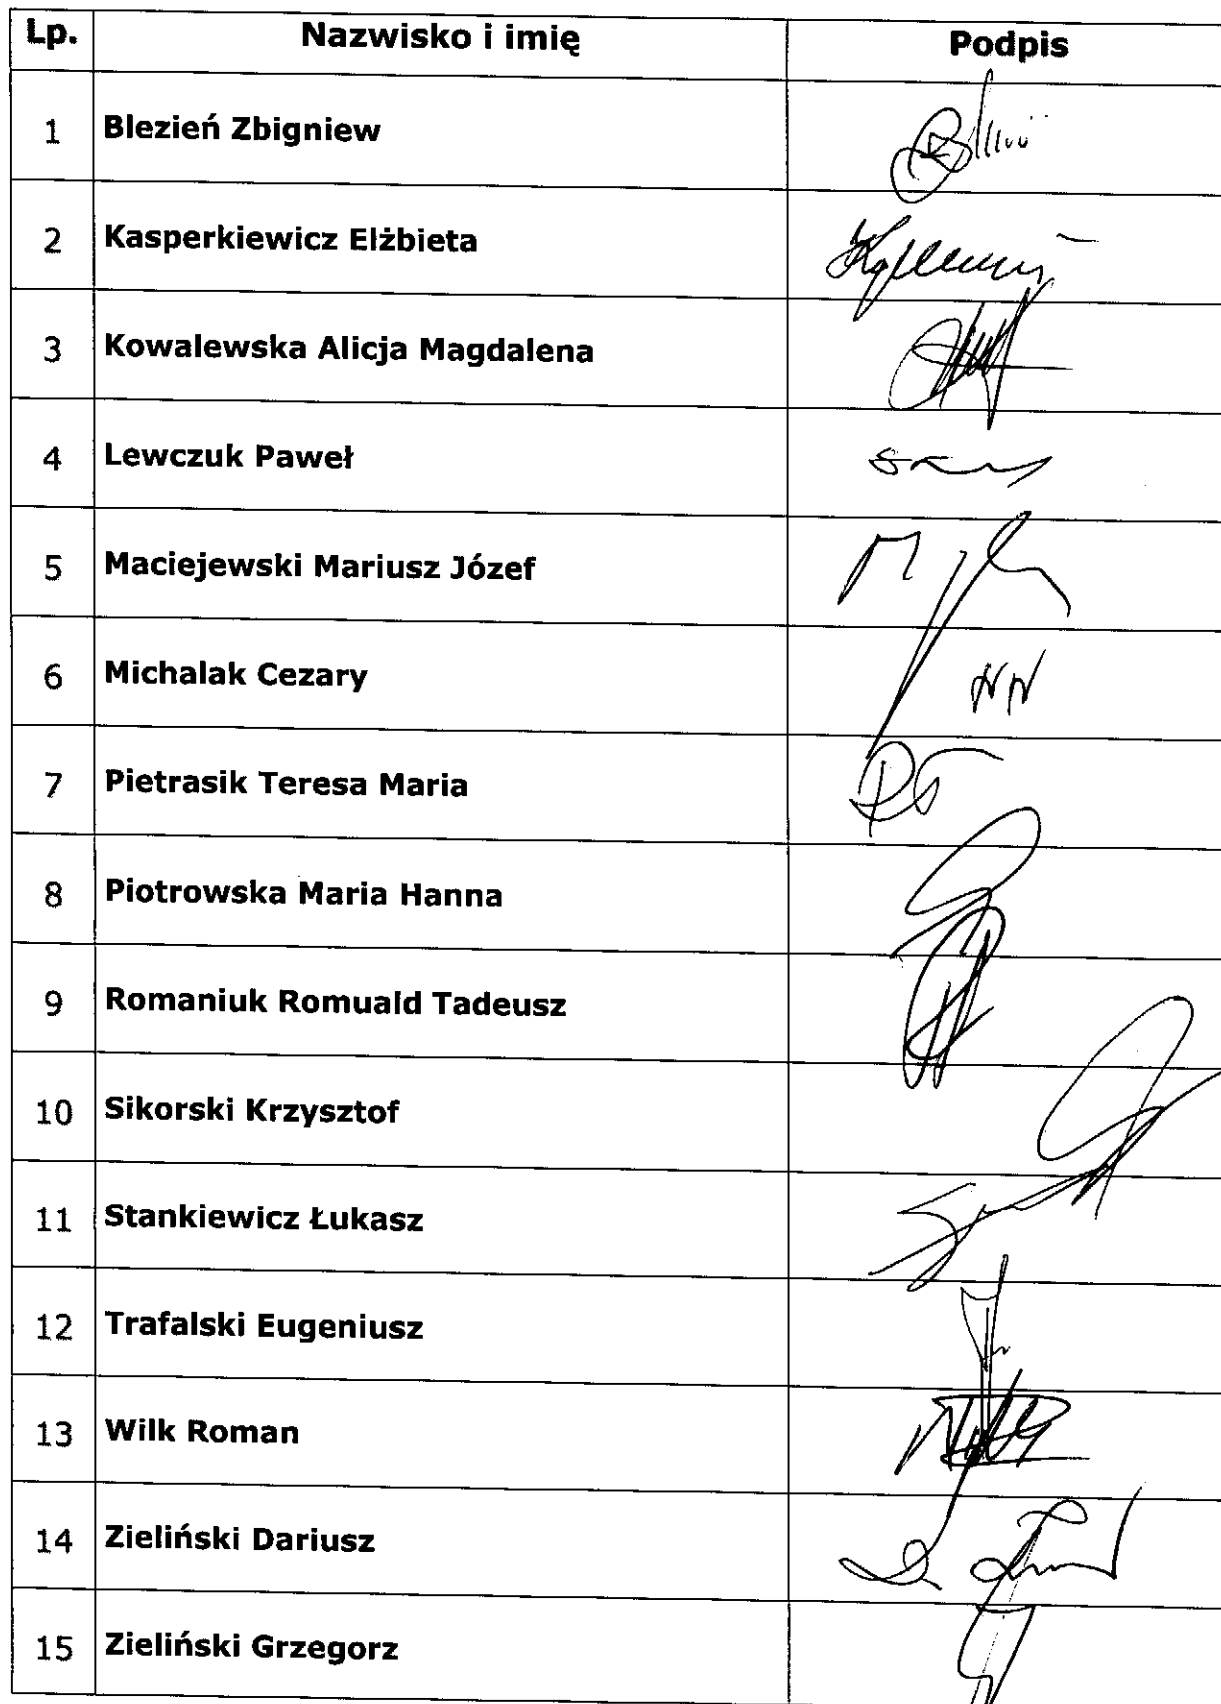 Lp. Nazwisko i imię Podpis
1 Blezień Zbigniew
2 Kasperkiewicz Elżbieta
3 Kowalewska Alicja Magdalena
4 Lewczuk Paweł
5 Maciejewski Mariusz Józef
6 Michalak Cezary
7 Pietrasik Teresa Maria
8 Piotrowska Maria Hanna
9 Romaniuk Romuald Tadeusz
10 Sikorski Krzysztof
11 Stankiewicz Łukasz
12 Trafalski Eugeniusz
13 Wilk Roman
14 Zieliński Dariusz
15 Zieliński Grzegorz